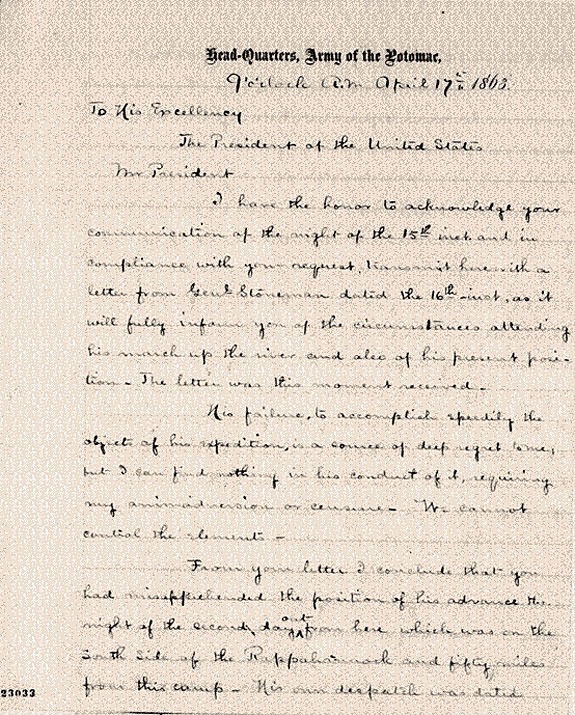 Head-Quarters, Army of the Potomac,
9 o'clock A.M. April 17th 1863.
To His Excellency
The President of the United States
Mr President
I have the honor to acknowledge your
communication of the night of the 15th inst. and in
compliance with your request, transmit herewith a
letter from Genl Stoneman dated the 16th inst, as it
will fully inform you of the circumstances attending
his march up the river and also of his present posi-
tion - The letter was this moment received -
His failure, to accomplish speedily the
objects of his expedition, is a source of deep regret to me,
but I can find nothing in his conduct of it, requiring
my animadversion or censure - We cannot
control the elements -
From your letter I conclude that you
had misapprehended the position of his advance the
night of the second day out from here which was on the
South Side of the Rappahannock and fifty miles
from this camp - His own despatch was dated
23033